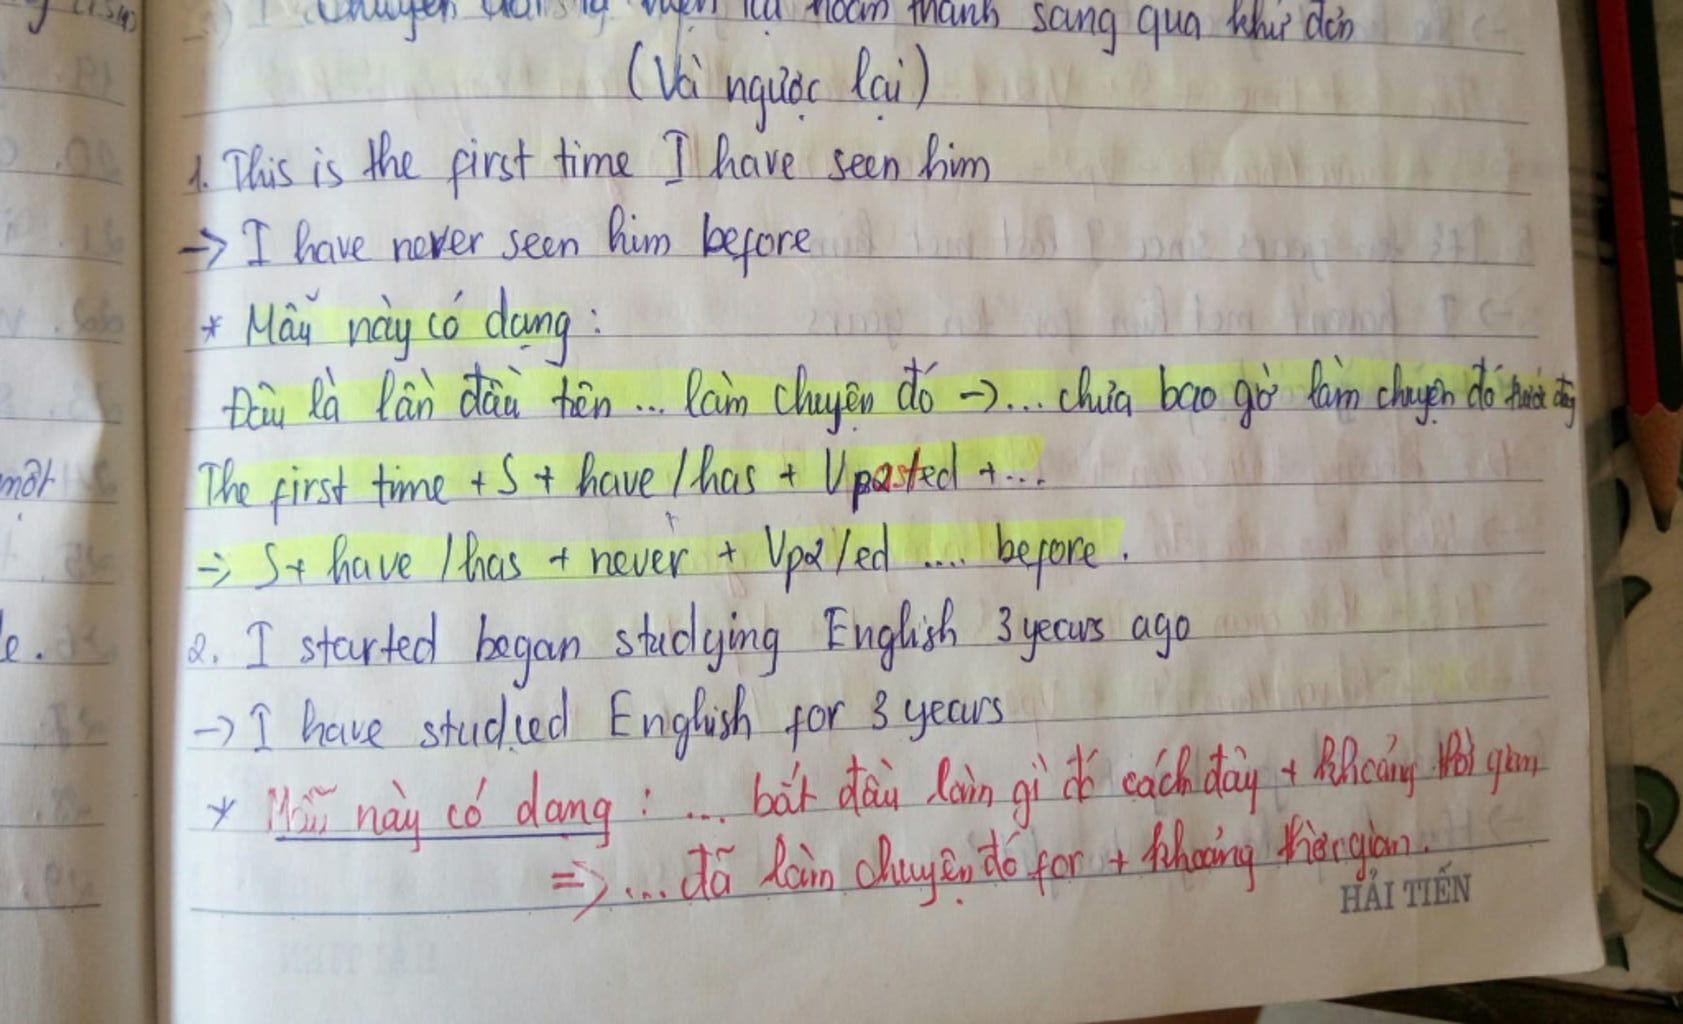 sang quá khứ đơn
(Và ngược lại)
1. This is the first time I have seen him
-> I have never seen him before
* Mẫu này có dạng :
Đâu là lần đầu tiên ... làm chuyện đó -> ... chưa bao giờ làm chuyện đó trước đây
The first time + S + have / has + Vpasted + ...
=> S + have / has + never + Vp2/ed .... before .
2. I started began studying English 3 years ago
-> I have studied English for 3 years
* Mẫu này có dạng : ... bắt đầu làm gì đó cách đây + khoảng thời gian
=> ... đã làm chuyện đó for + khoảng thời gian.
HẢI TIẾN
một